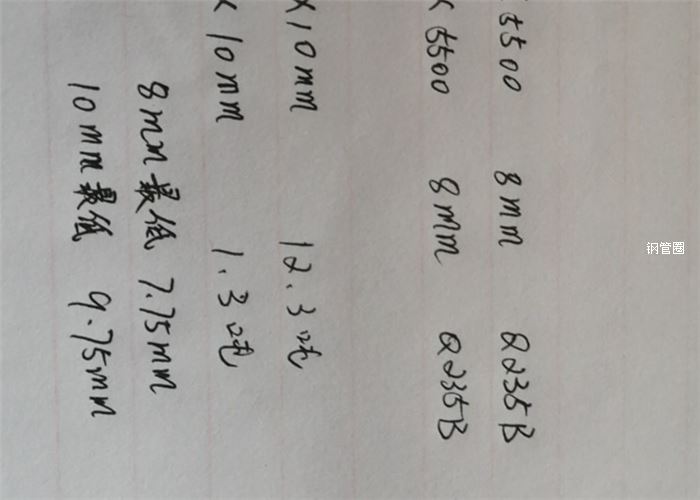 5500 8mm Q235B
×5500 8mm Q235B
×10mm 12.3吨
×10mm 1.3吨
8mm最低 7.75mm
10mm最低 9.75mm
钢管圈